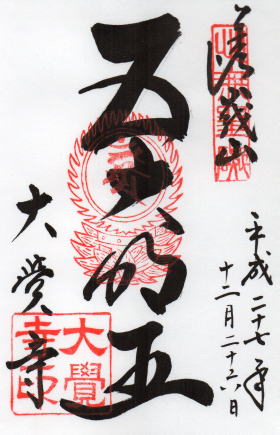 嵯峨山
平成二十七年
十二月二十六日
五大明王
大覚寺
大覺
寺印